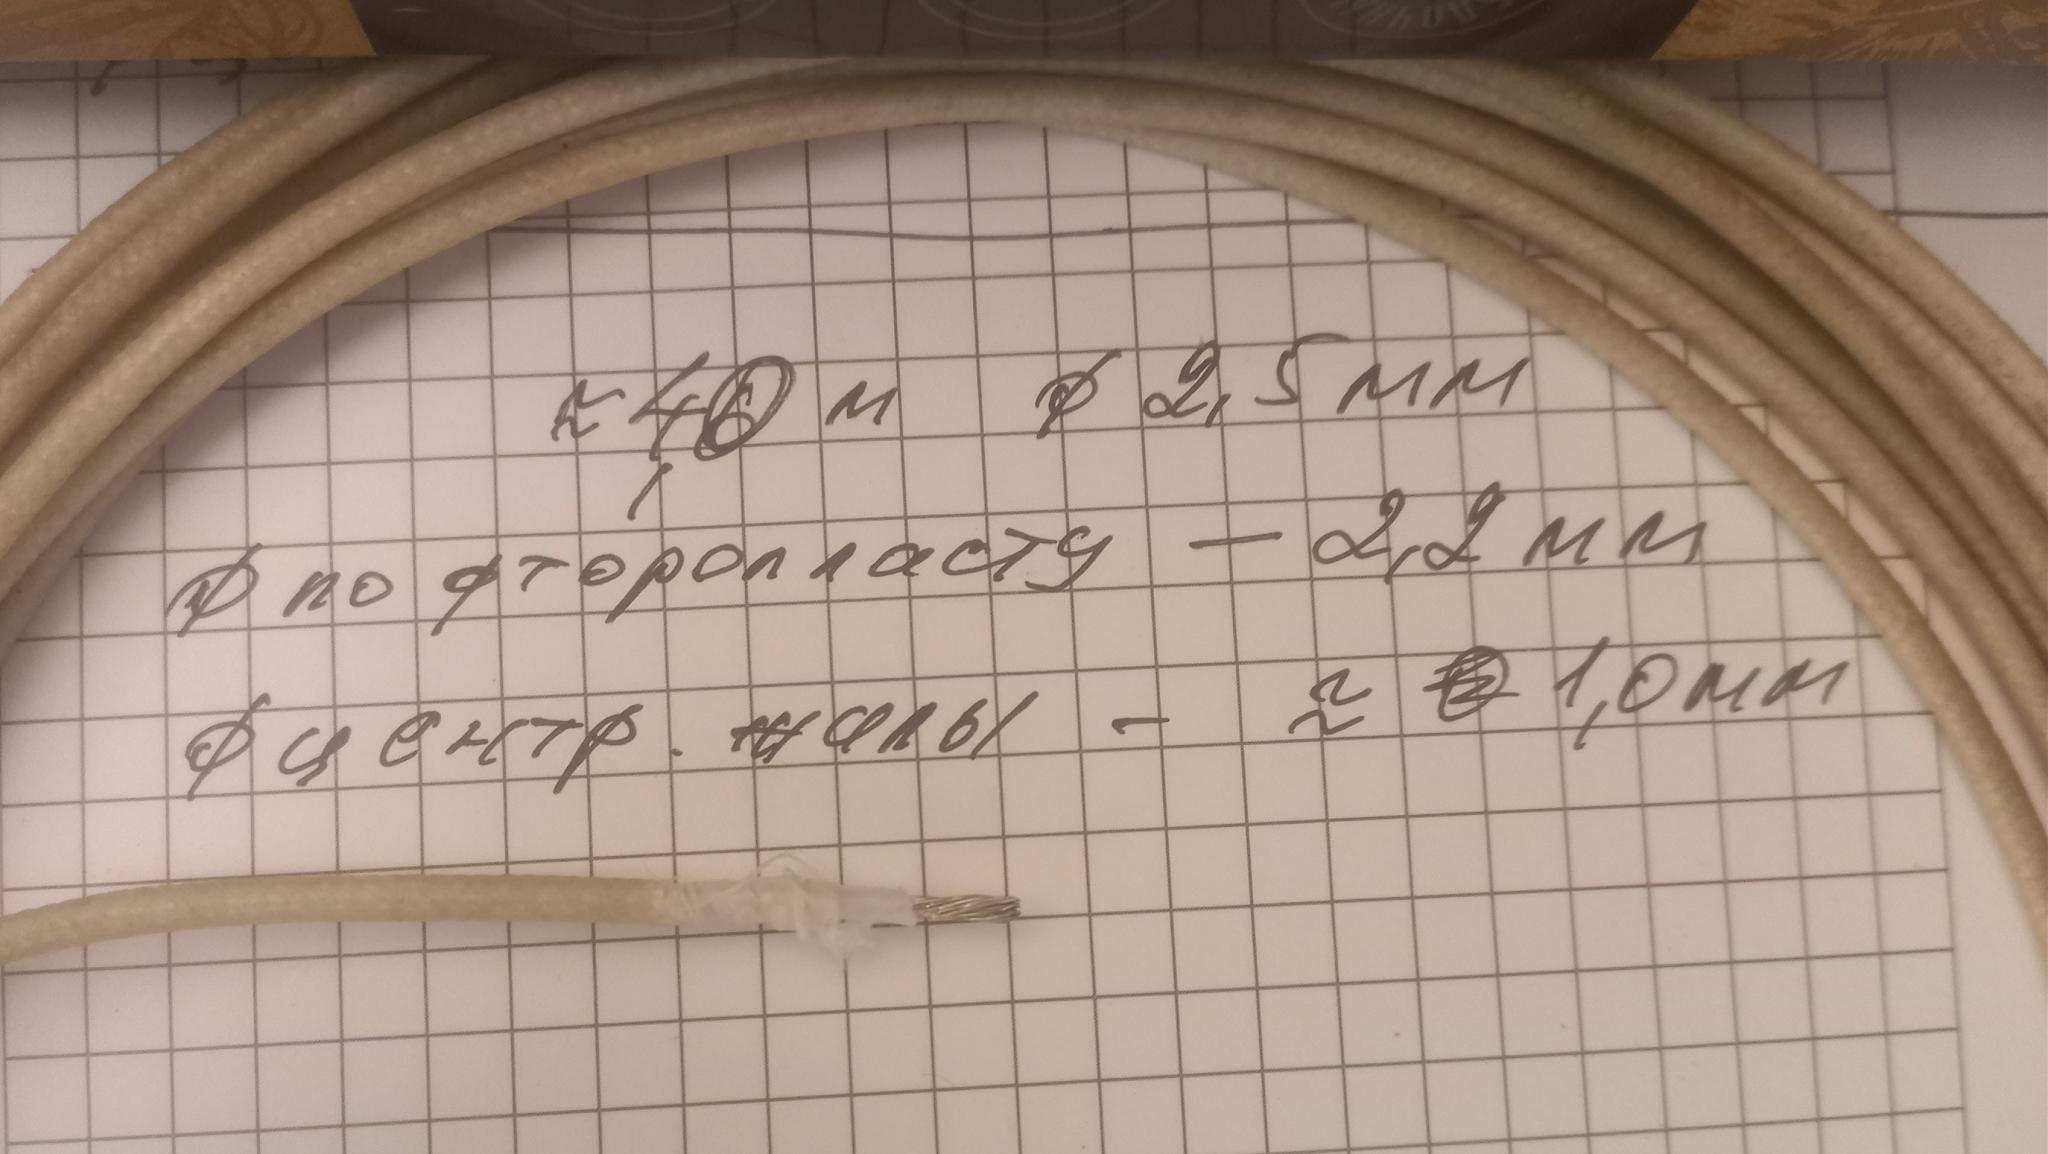 ≈ 40 м ⌀ 2,5 мм
⌀ по фторопласту — 2,2 мм
⌀ центр. жалы - ≈ 1,0 мм